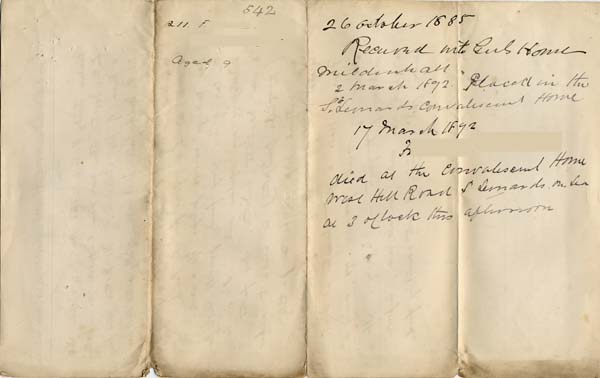 542
211. F
Aged 9
26 October 1885
Received into Girls Home
Mildenhall
2 March 1892. Placed in the
St Leonards Convalescent Home
17 March 1892
F
died at the Convalescent Home
West Hill Road St Leonards on Sea
at 3 o'clock this afternoon